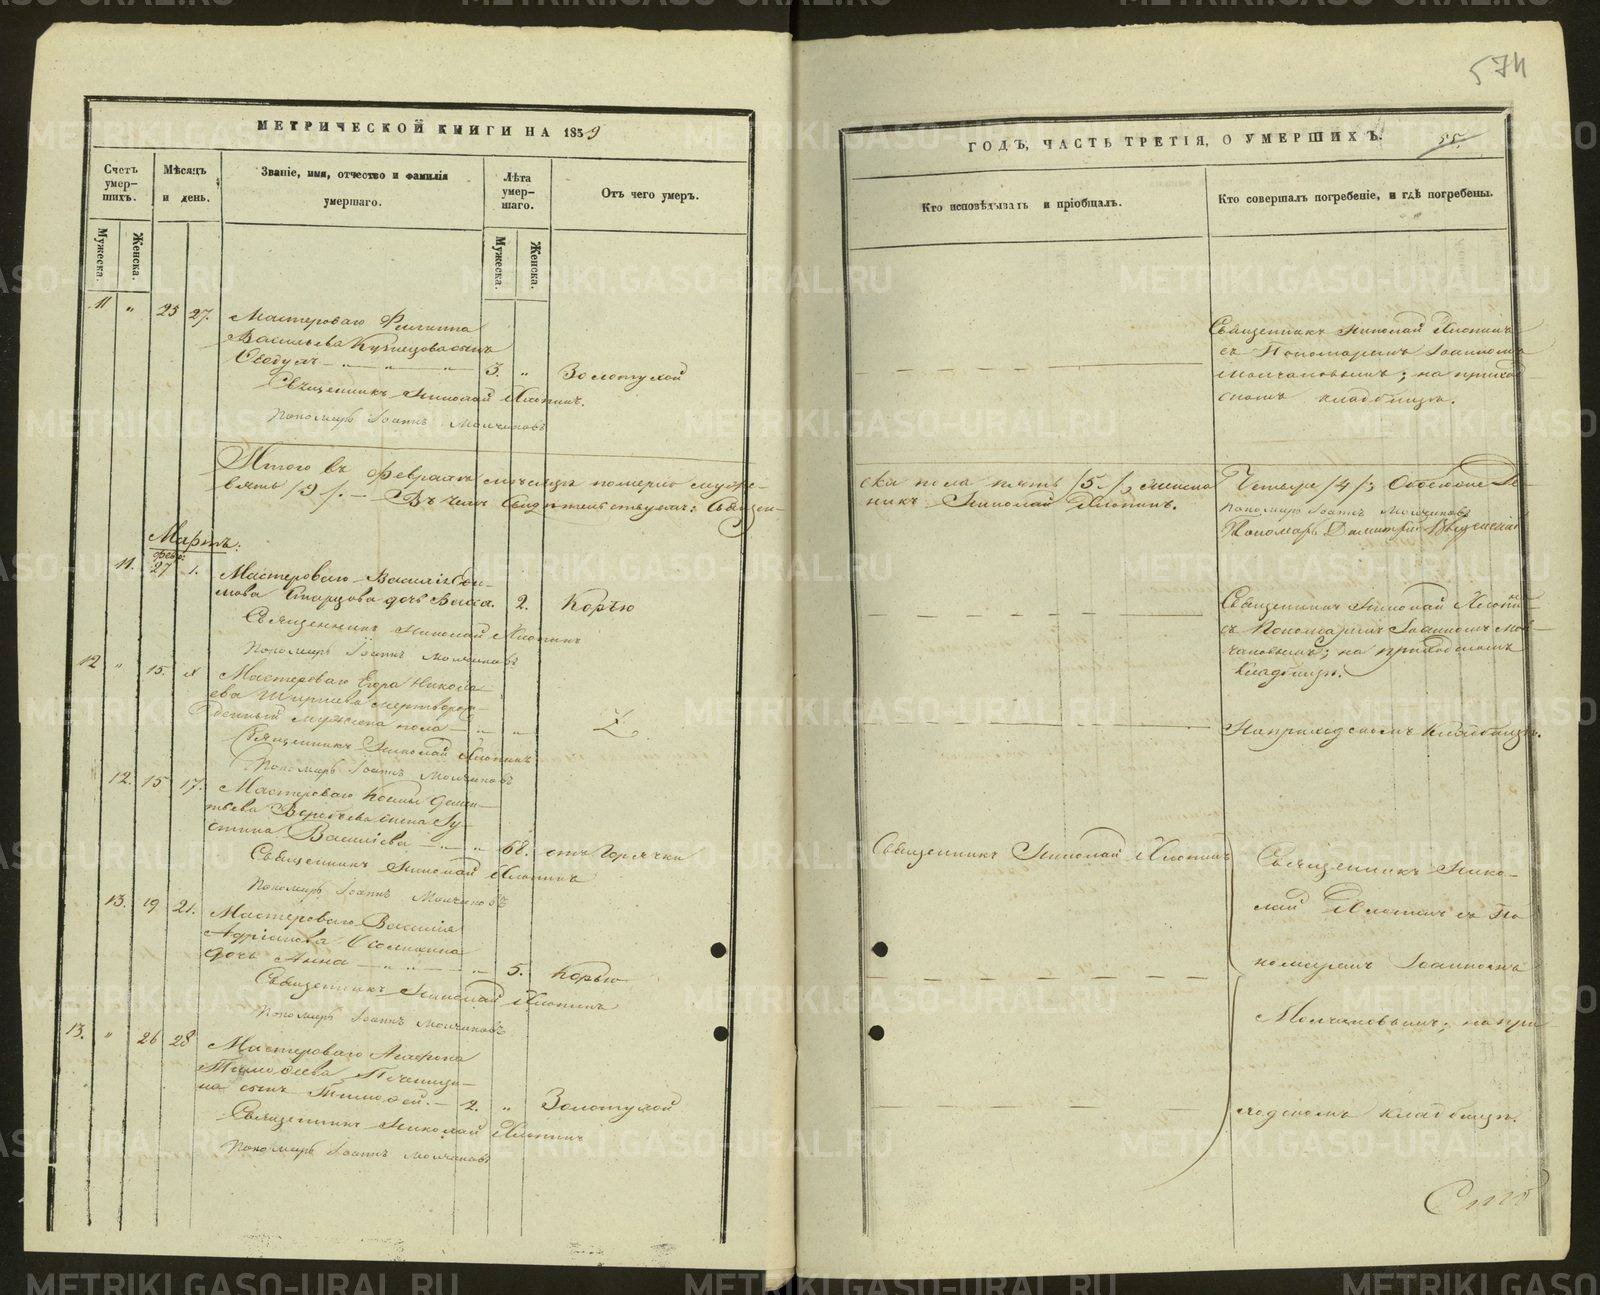 574
МЕТРИЧЕСКОЙ КНИГИ НА 1839
Счетъ умерших.
Мѣсяцъ и день.
Званіе, имя, отчество и фамилія умершаго.
Лѣта умершаго.
Отъ чего умеръ.
Мужеска.
Женска.
Мужеска.
Женска.
11 " 25 27. Мастероваго Филиппа
Васильева Кузнецова сынъ
3. " Золотухой
Священникъ Николай Хлопинъ.
Пономарь Іоаннъ Молчановъ
Итого въ Февралѣ мѣсяцѣ померло муже-
вять /9/. — Въ чемъ свидѣтельствуемъ: Священ-
Мартъ.
Фев:
11. 27 1. Мастероваго Василія
Старцова дочь Васса. 2. Корью
Священникъ Николай Хлопинъ
Пономарь Іоаннъ Молчановъ
12 " 15. Мастероваго Егора Никола-
ева мертворож-
денный мужеска пола — " "
Священникъ Николай Хлопинъ
Пономарь Іоаннъ Молчановъ
12. 15 17. Мастероваго Козмы
Воробьева жена Іу-
стина Васильева — " — " 68. отъ Горячки
Священникъ Николай Хлопинъ
Пономарь Іоаннъ Молчановъ
13. 19 21. Мастероваго Василія
Адріанова
дочь Анна — " — " 5. Корью
Священникъ Николай Хлопинъ
Пономарь Іоаннъ Молчановъ
13. " 26 28 Мастероваго Агафона
Тимофеева
на сынъ Тимофей. — 2. " Золотухой
Священникъ Николай Хлопинъ
Пономарь Іоаннъ Молчановъ
ГОДЪ, ЧАСТЬ ТРЕТІЯ, О УМЕРШИХЪ.
55.
Кто исповѣдывалъ и пріобщалъ.
Кто совершалъ погребеніе, и гдѣ погребены.
Священникъ Николай Хлопинъ
съ Пономаремъ Іоанномъ
Молчановымъ; на приход-
скомъ кладбищѣ.
ска пола пять /5/, женска
Четыре /4/;
никъ Николай Хлопинъ.
Пономарь Іоаннъ Молчановъ
Пономарь Димитрій Введенскій
Священникъ Николай Хлопинъ
съ Пономаремъ Іоанномъ Мол-
чановымъ; на приходскомъ
кладбищѣ.
На приходскомъ кладбищѣ.
Священникъ Николай Хлопинъ
Священникъ Нико-
лай Хлопинъ съ По-
номаремъ Іоанномъ
Молчановымъ; на при-
ходскомъ кладбищѣ.
METRIKI.GASO-URAL.RU